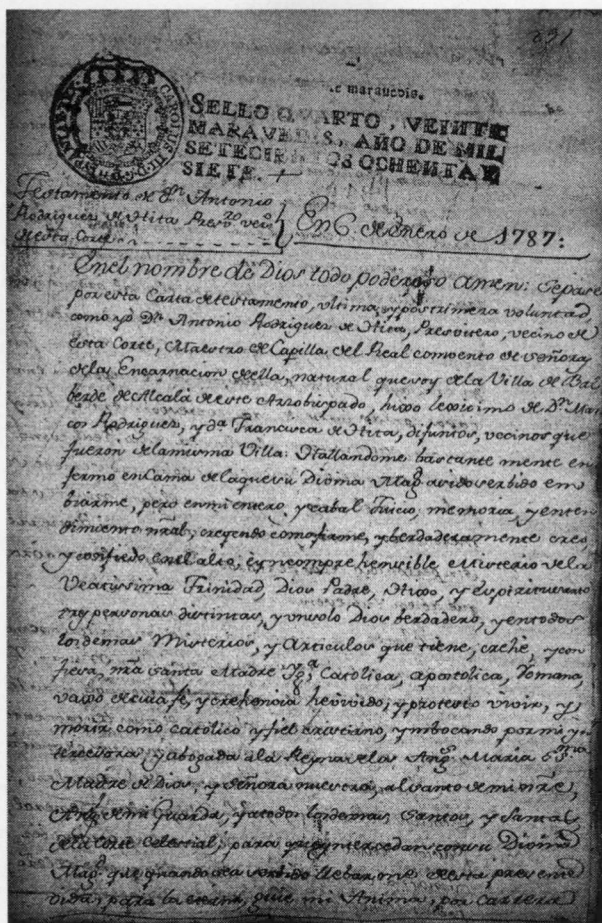 891
e marauedis.
SELLO QVARTO, VEINTE
MARAVEDIS, AÑO DE MIL
SETECIENTOS OCHENTA Y
SIETE.
Testamento de Dn Antonio
Rodriguez de Hita Presvro vecº
de esta Corte
En 6 de Enero de 1787:
En el nombre de Dios todo poderoso Amen: Sepase
por esta Carta de testamento, ultima, y postrimera voluntad
como yo Dn Antonio Rodriguez de Hita, Presvitero, vecino de
esta Corte, Maestro de Capilla del Real combento de señoras
de la Encarnacion de ella, natural que soy de la Villa de Bal
berde de Alcalá de este Arzobispado, hijo lexitimo de Dn Mar
cos Rodriguez, y Dª Francisca de Hita, difuntos, vecinos que
fueron de la misma Villa: Hallandome bastante mente en
fermo en Cama de la que su Divina Magd a sido serbido em
biarme, pero en mi entero, y cabal Juicio, memoria, y enten
dimiento nral; creyendo como firme, y berdaderamente creo,
y confieso en el alto, e yncomprehensible Misterio de la
Veatissima Trinidad, Dios Padre, Hijo, y Espiritu santo
tres personas distintas, y un solo Dios berdadero, y en todos
los demas Misterios, y Articulos que tiene, crehe, y con
fiesa, nra santa Madre Ygª Catolica, apostolica, Romana,
vajo de cuia fe, y crehencia he vivido, y protesto vivir, y
morir como catolico y fiel cristiano, ymbocando por mi yn
tercesora y abogada a la Reyna de los Angs Maria Sma
Madre de Dios, y señora nuestra, al santo de mi nre,
Angl de mi Guarda, y a todos los demas Santos, y Santas
de la Corte Celestial, para que yntercedan con su Divina
Magd que quando sea servido llebarme de esta presente
vida, para la eterna, guie mi Anima, por Carrera